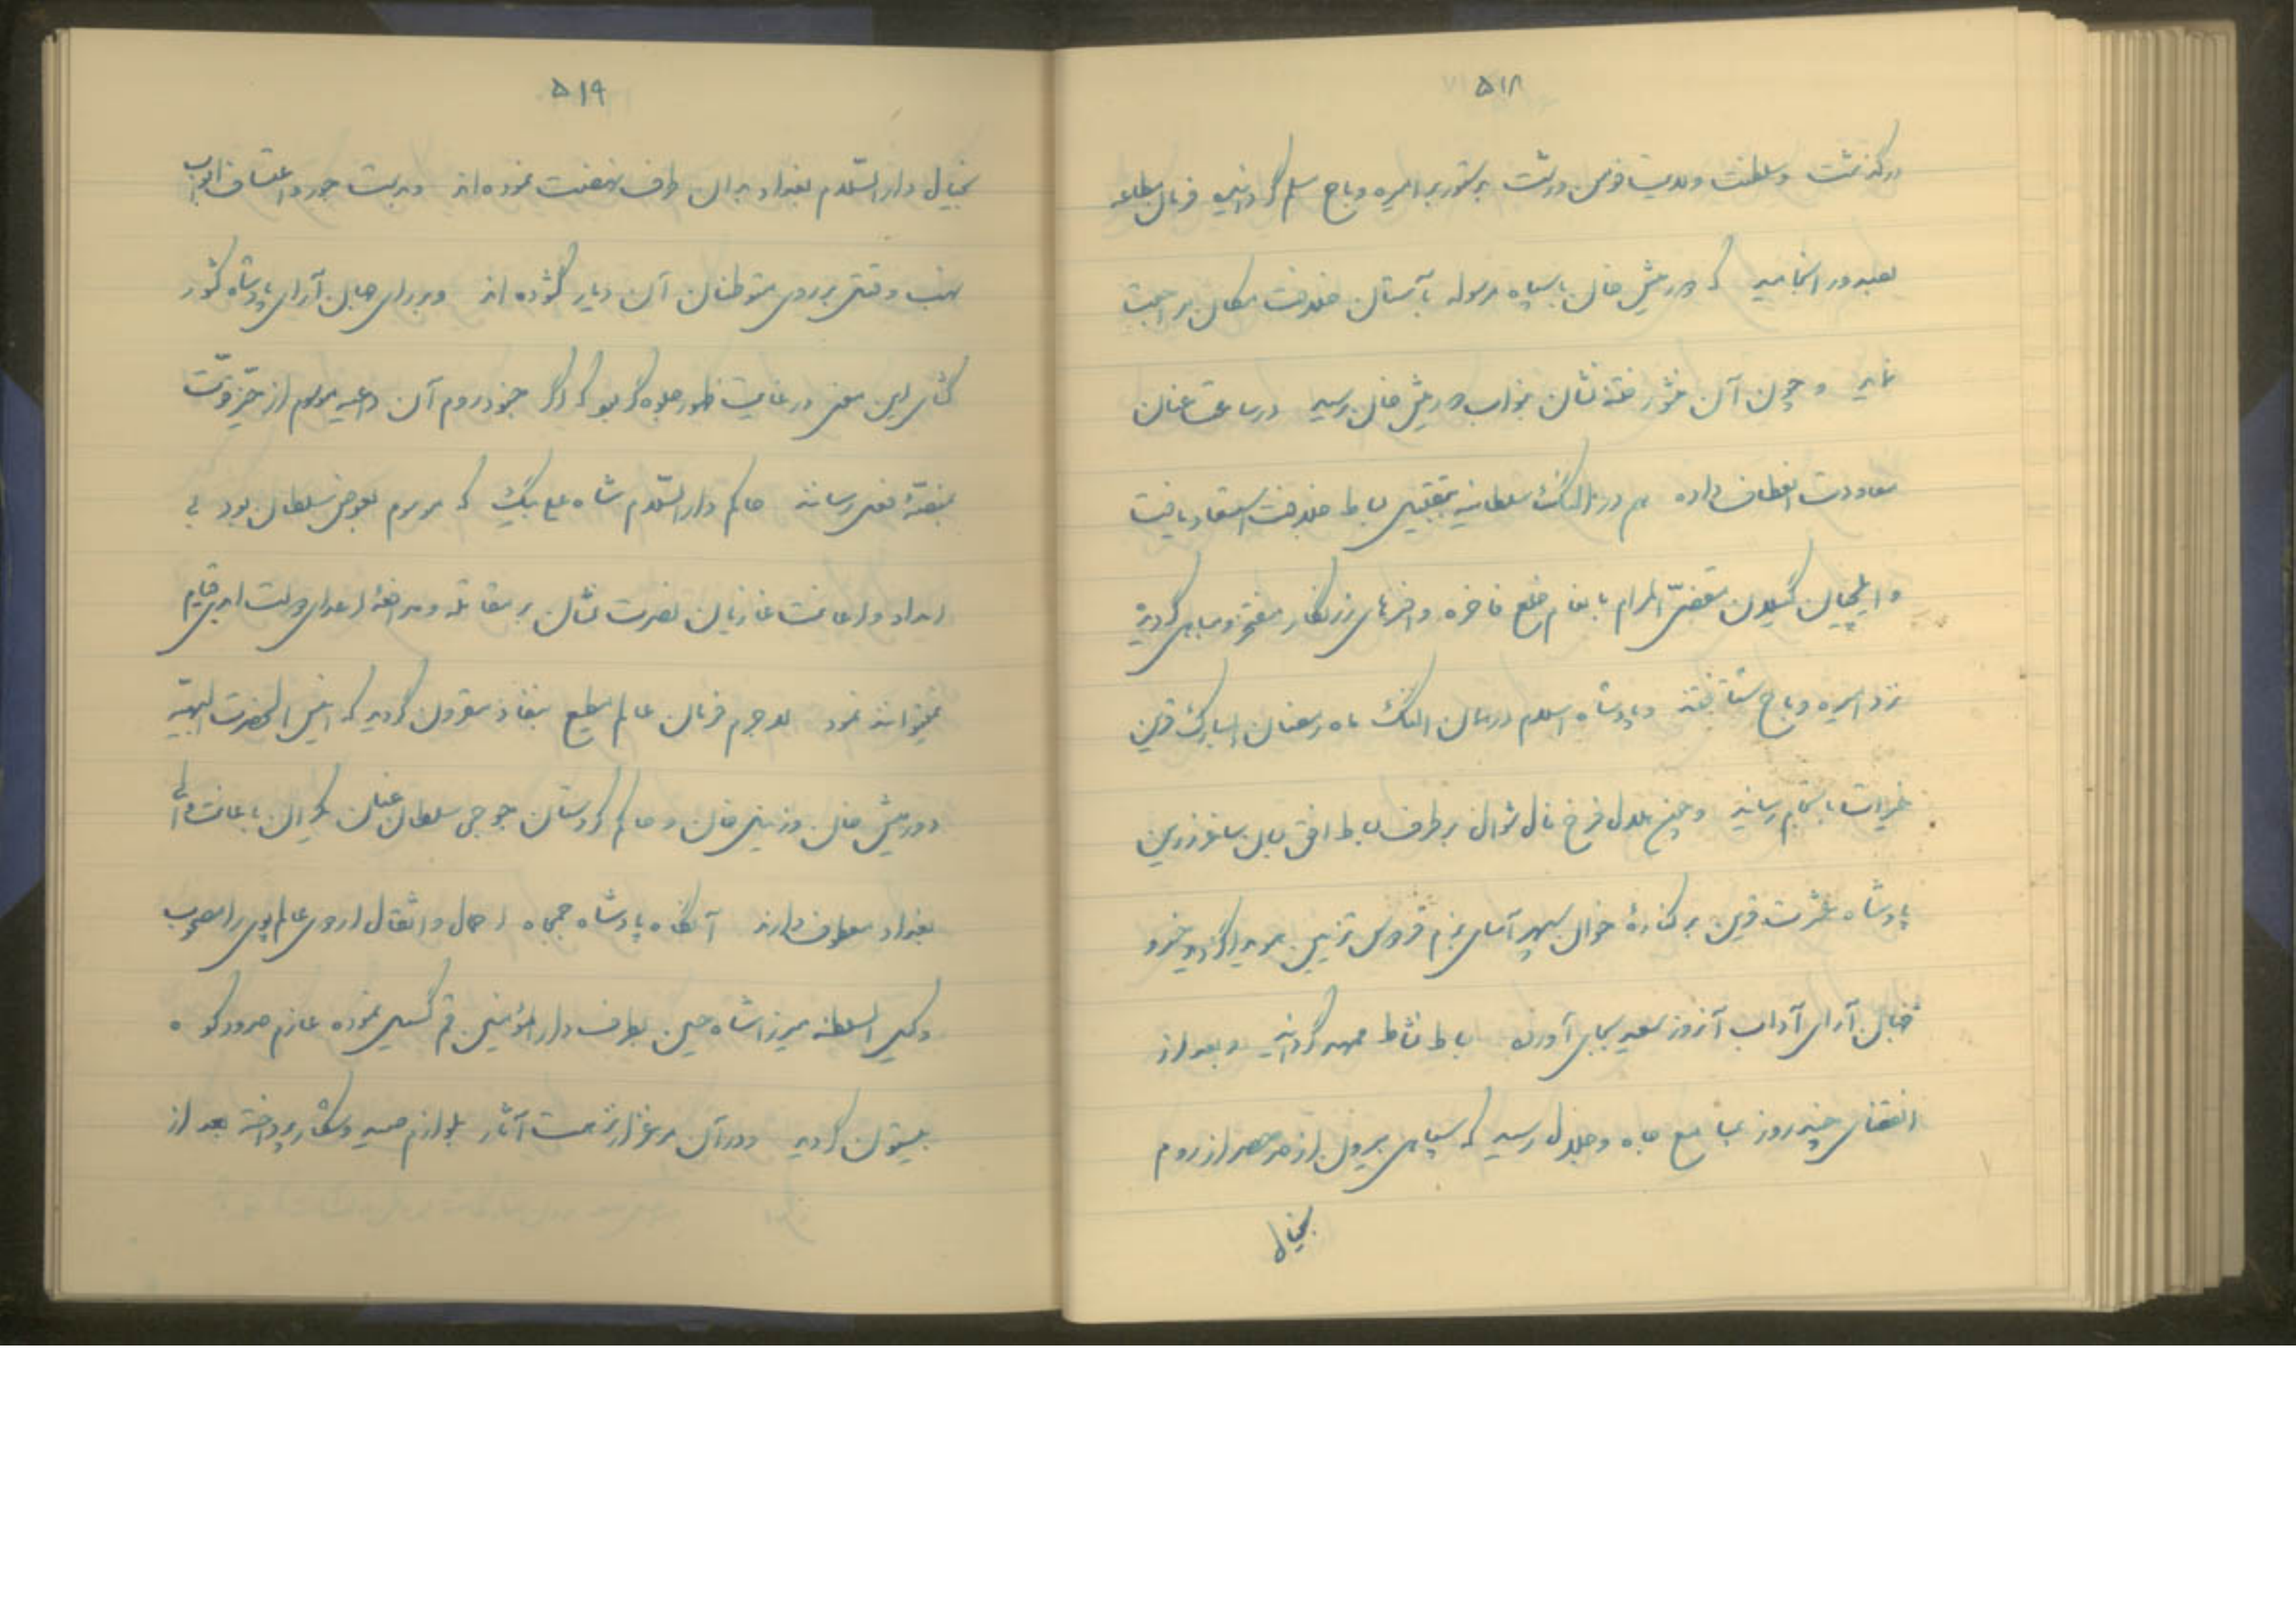 ۵۱۸
درگذشت و سلطنت ولایت فومن و رشت بدستور بر امیره دباج مسلم گردانیده فرمان مطاعه
بصدور انجامید که دورمیش خان با سپاه مرسوله بآستان خلافت مکان مراجعت
نماید و چون آن منشور خجسته نشان بنواب دورمیش خان رسید در ساعت عنان
معاودت انعطاف داده هم در النگ سلطانیه بتقبیل بساط خلافت استسعاد یافت
و ایلچیان گیلان مقضی المرام بانعام خلع فاخره و افسرهای زرنگار مفتخر و مباهی گردیده
نزد امیره دباج شتافتند و پادشاه اسلام در همان النگ ماه رمضان المبارک قرین
خیرات باتمام رسانید و چون هلال فرخ فال شوال بر طرف بساط افق بسان ساغر زرین
پادشاه عشرت قرین بر کنارهٔ خوان سپهر آسای بزم فردوس تزیین پدیدار گردید خسرو
جهان آرای آداب آنروز سعید بجای آورده بساط نشاط ممهد گردانید و بعد از
انقضای چند روز بمسامع جاه و جلال رسید که سپاهی بیرون از حد حصر از روم
بخیال
۵۱۹
بخیال دارالسلام بغداد بدان طرف نهضت نموده‌اند و بدست جور و اعتساف ابواب
نهب و فتنه بر روی متوطنان آن دیار گشوده‌اند و بر رای جهان آرای پادشاه کشور
گشای این معنی در غایت ظهور جلوه‌گر بود که اگر جنود روم آن داعیه موهوم از حیز قوت
بمنصهٔ فعل رسانند حاکم دارالسلام شاه علی بیگ که موسوم بعوض سلطان بود بی
امداد و اعانت غازیان نصرت نشان بر مقاتله و مدافعهٔ اعدای دولت ابدی قیام
نمیتواند نمود لاجرم فرمان عالم مطیع بنفاذ مقرون گردید که انیس الحضرت البهیه
دورمیش خان و زینل خان و حاکم کردستان جوجی سلطان عنان یکران باعانت والی
بغداد معطوف دارند آنگاه پادشاه جمجاه احمال و اثقال اردوی عالم پوی را مصحوب
وکیل السلطنه میرزا شاه حسین بطرف دارالمؤمنین قم گسیل نموده عازم حدود کوه
بیستون گردید و در آن مرغزار نزهت آثار بلوازم صید و شکار پرداخته بعد از